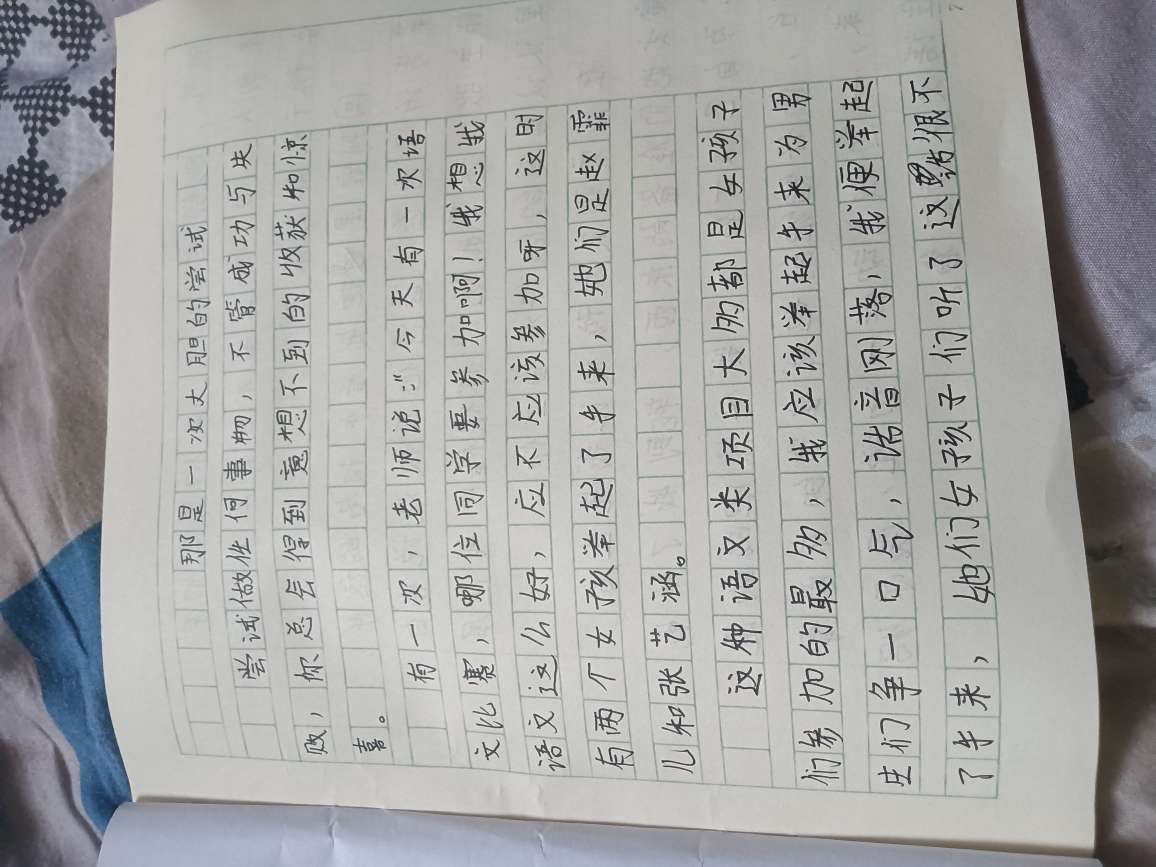 那是一次大胆的尝试
尝试做任何事物，不管成功与失
败，你总会得到意想不到的收获和惊
喜。
有一次，老师说：“今天有一次语
文比赛，哪位同学要参加啊！我想我
语文这么好，应不应该参加呀，这时
有两个女孩举起了手来，她们是赵霏
儿和张艺涵。
这种语文类项目大多都是女孩子
们参加的最多，我应该举起手来为男
生们争一口气，话音刚落，我便举起
了手来，她们女孩子们听了这很不